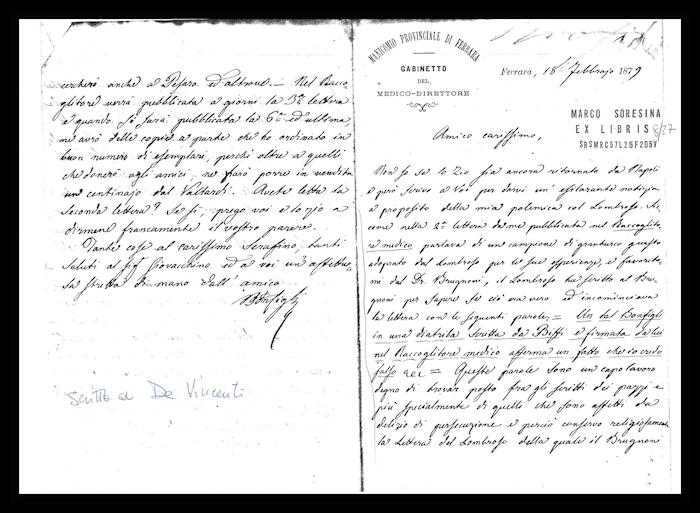 cercherà anche a Pesaro ed altrove. — Nel Racco-
glitore verrà pubblicata a giorni la 5ª lettera
e quando si sarà pubblicata la 6ª ed ultima
ne avrò delle copie a parte che ho ordinato in
buon numero di esemplari, perchè oltre a quelli
che donerò agli amici, ne farò porre in vendita
un centinajo dal Vallardi. Avete letta la
seconda lettera? Se sì, prego voi e lo zio a
dirmene francamente il vostro parere.
Tante cose al carissimo Serafino, tanti
saluti al Sigr Giovacchino ed a voi un' affettuo-
sa stretta di mano dall' amico
Bonfigli
Scritto a De Vincenti
MANICOMIO PROVINCIALE DI FERRARA
GABINETTO
DEL
MEDICO-DIRETTORE
Ferrara, 18 Febbrajo 1879
MARCO SORESINA
EX LIBRIS
SRSMRC57L25F205V
Amico carissimo,
Non so se lo Zio sia ancora ritornato da Napoli
e però scrivo a Voi per darvi un' esilarante notizia
a proposito della mia polemica col Lombroso. Sic-
come nella 2ª lettera da me pubblicata nel Raccoglito-
re medico parlava di un campione di granturco guasto
adoperato dal Lombroso per le sue esperienze, e favorito-
mi dal Dr. Brugnoni, il Lombroso ha scritto al Bru-
gnoni per sapere se ciò era vero ed incominciava
la lettera con le seguenti parole = Un tal Bonfigli
in una diatriba scritta da Biffi e firmata da lui
nel Raccoglitore medico afferma un fatto che io credo
falso ecc = Queste parole sono un capo lavoro
degno di trovar posto fra gli scritti dei pazzi e
più specialmente di quelli che sono affetti da
delirio di persecuzione e perciò conservo religiosamente
la Lettera del Lombroso della quale il Brugnoni